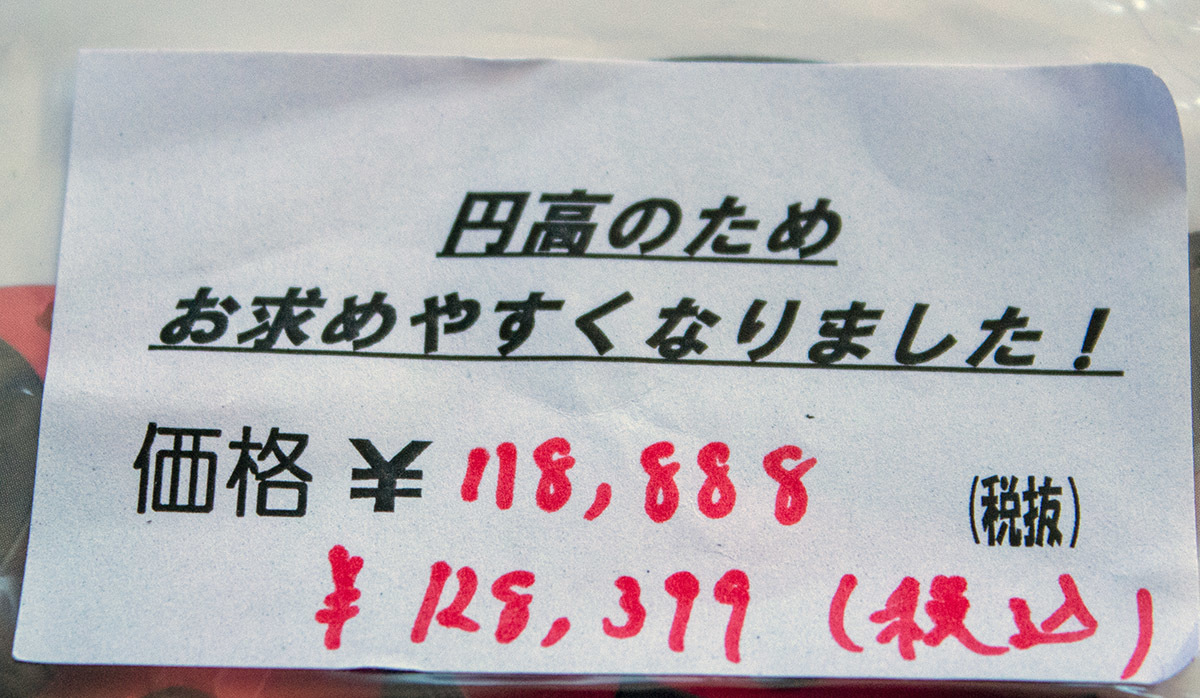 円高のため
お求めやすくなりました!
価格 ¥118,888 (税抜)
¥128,399 (税込)